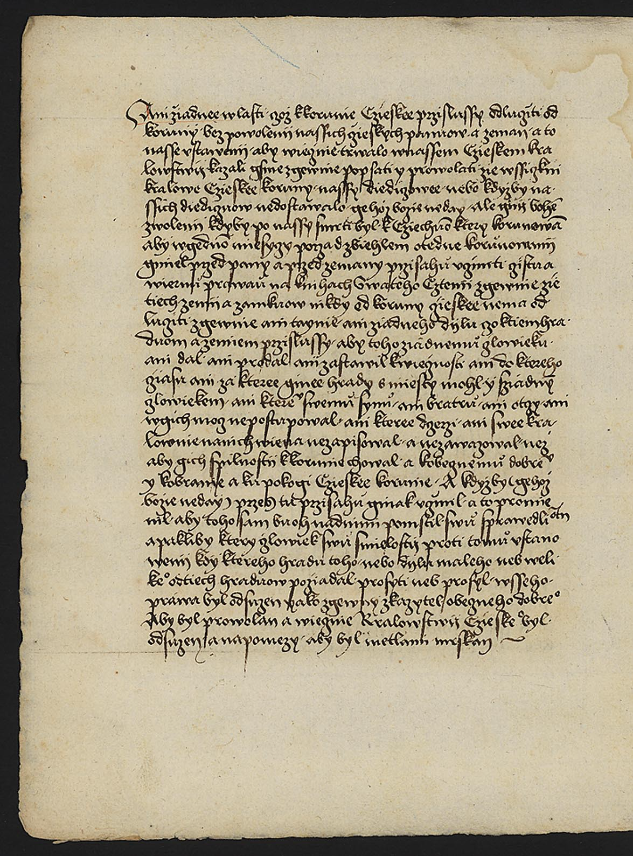 Ani ziadnee wlasti · goz kkorunie Czieskee przislussy odlugiti od
koruny · bez powolenij nassich gieskych panuow · a zeman · a to
nasse vstawenij · aby wiegnie trwalo wnassem Czieskem kra
lowstwij · kazali gsme zgewnie popsati y prowolati ze wssigkni
kralowe Czieskee koruny · nassy diedigowee · nebo kdyzby na
ssich diediguow nedostawalo · gehoz bozie neday · Ale ginij bohem
zwolenij kdyby po nassy smrti byl k Cziechuom ktery korunowan
aby wgedno miesyzy porzad zbiehlem otedne korunowanij
gmiel przed pany a przed zemany przisahu vginiti gistu a
wiernu prawau na knihach Swateho Cztenij zgewnie zie
tiech zemij a zamkuow nikdy od koruny gieskee nema od
lugiti zgewnie ani taynie · ani ziadneho dijlu · goktiem hra
duom a zemiem przislussy · aby toho ziadnemu glowieku ·
ani dal · ani prodal · ani zastawil kwiegnosti · ani do ktereho
giasu ani za kteree gmee hrady s miesty mohl · y s ziadnym
glowiekem · ani kteremu swemu synu · ani bratru · ani otgy · ani
wgich mog nepostupowal · ani kteree dgerzi · ani swee kra
lownie nanich wiena nezapisowal · a nezawazowal · nez
aby gich spilnostij kkorunie chowal · a kobegnemu dobremu
y kobranie a ku pokogi Czieskee korunie · A kdyzby (gehoz
bozie neday) przes tu przisahu ginak vginil · a to promie
nil · aby toho sam buoh nadnim pomstil swu sprawedlnostij
a paklby ktery glowiek swu smielostij proti tomu vstano
wenij kdy ktereho hradu toho · nebo dijlu maleho neb weli
keho odtiech hraduow pozadal · prosyti neb prosyl · wsseho
prawa byl odsuzen · yako zgewny zkazytel obegneho dobreho
Aby byl prowolan a wiegnie Kralowstwij Czieskeho byl ·
odsuzen / a napomezy · aby byl metlami mrskan